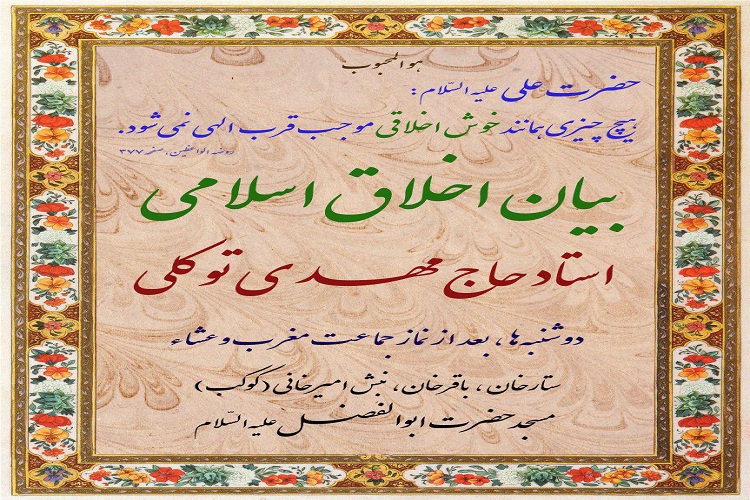 هو المحبوب
حضرت علی علیه السّلام :
هیچ چیزی همانند خوش اخلاقی موجب قرب الهی نمی شود.
روضه الواعظین، صفحه ۳۷۷
بیان اخلاق اسلامی
استاد حاج مهدی توکلی
دوشنبه ها، بعد از نماز جماعت مغرب و عشاء
ستارخان، باقرخان، نبش امیرخانی (کوکب)
مسجد حضرت ابوالفضل علیه السّلام